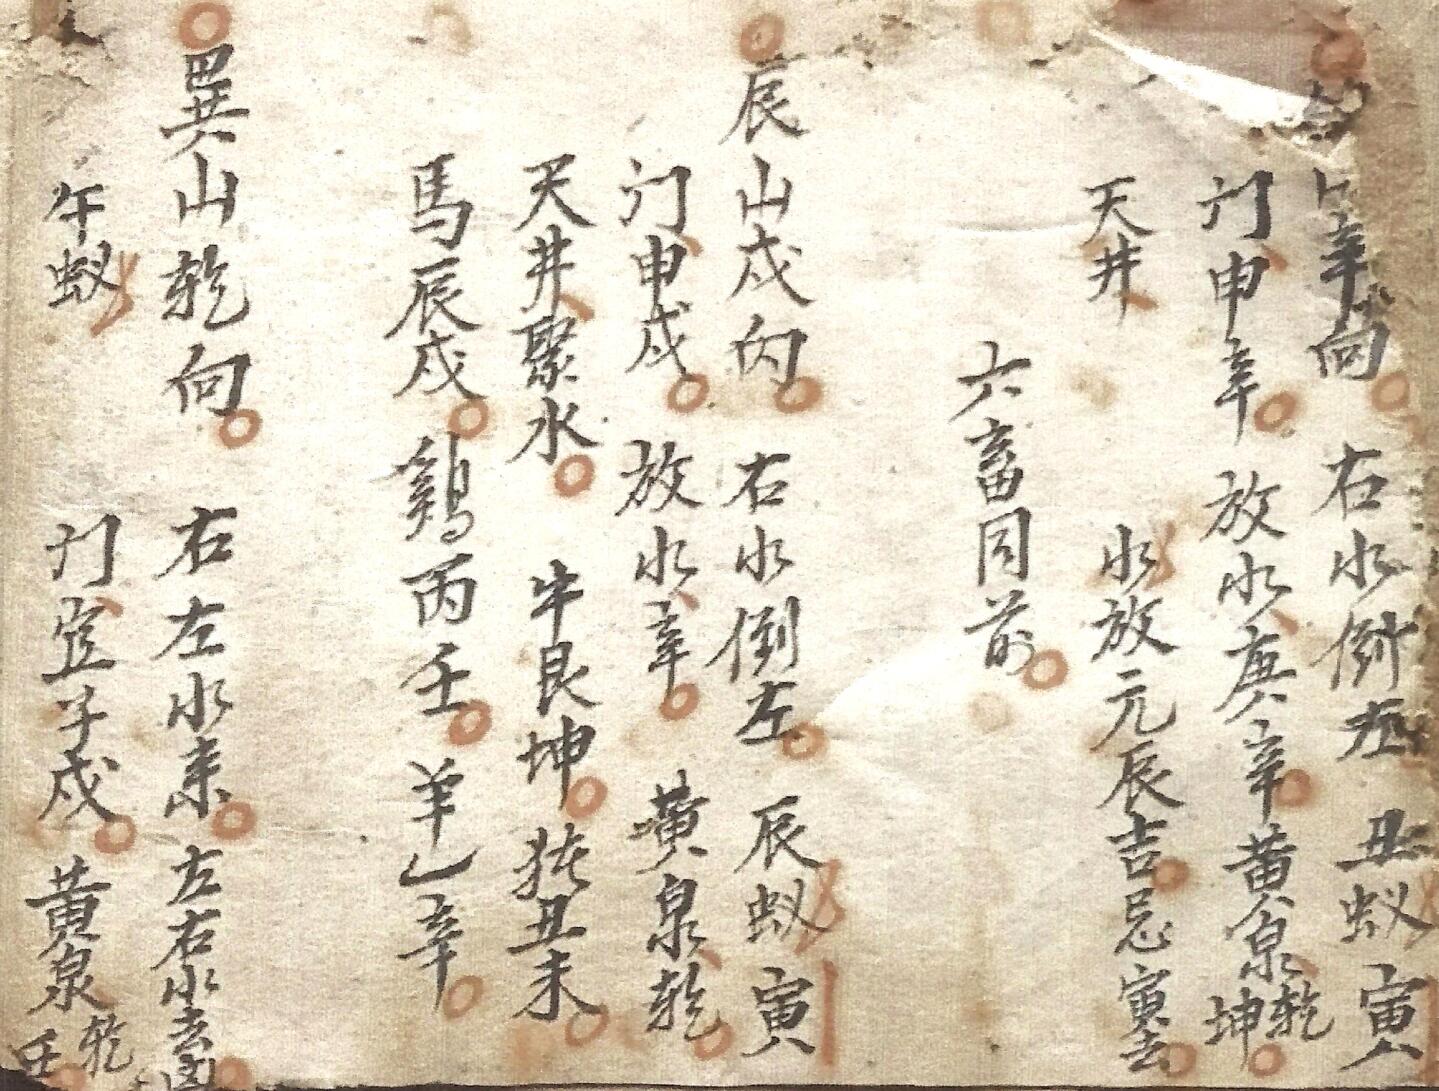 山辛向 右水倒左 丑蚁寅
门申辛 放水庚辛 黄泉乾坤
天井 水放元辰吉 忌寅去
六畜同前
辰山戌向 右水倒左 辰蚁寅
门申戌 放水辛 黄泉乾
天井聚水 牛艮坤 猪丑未
馬辰戌 鷄丙壬 羊乙辛
巽山乾向 右左水来 左右水去凶
午蚁 门宜子戌 黄泉乾壬